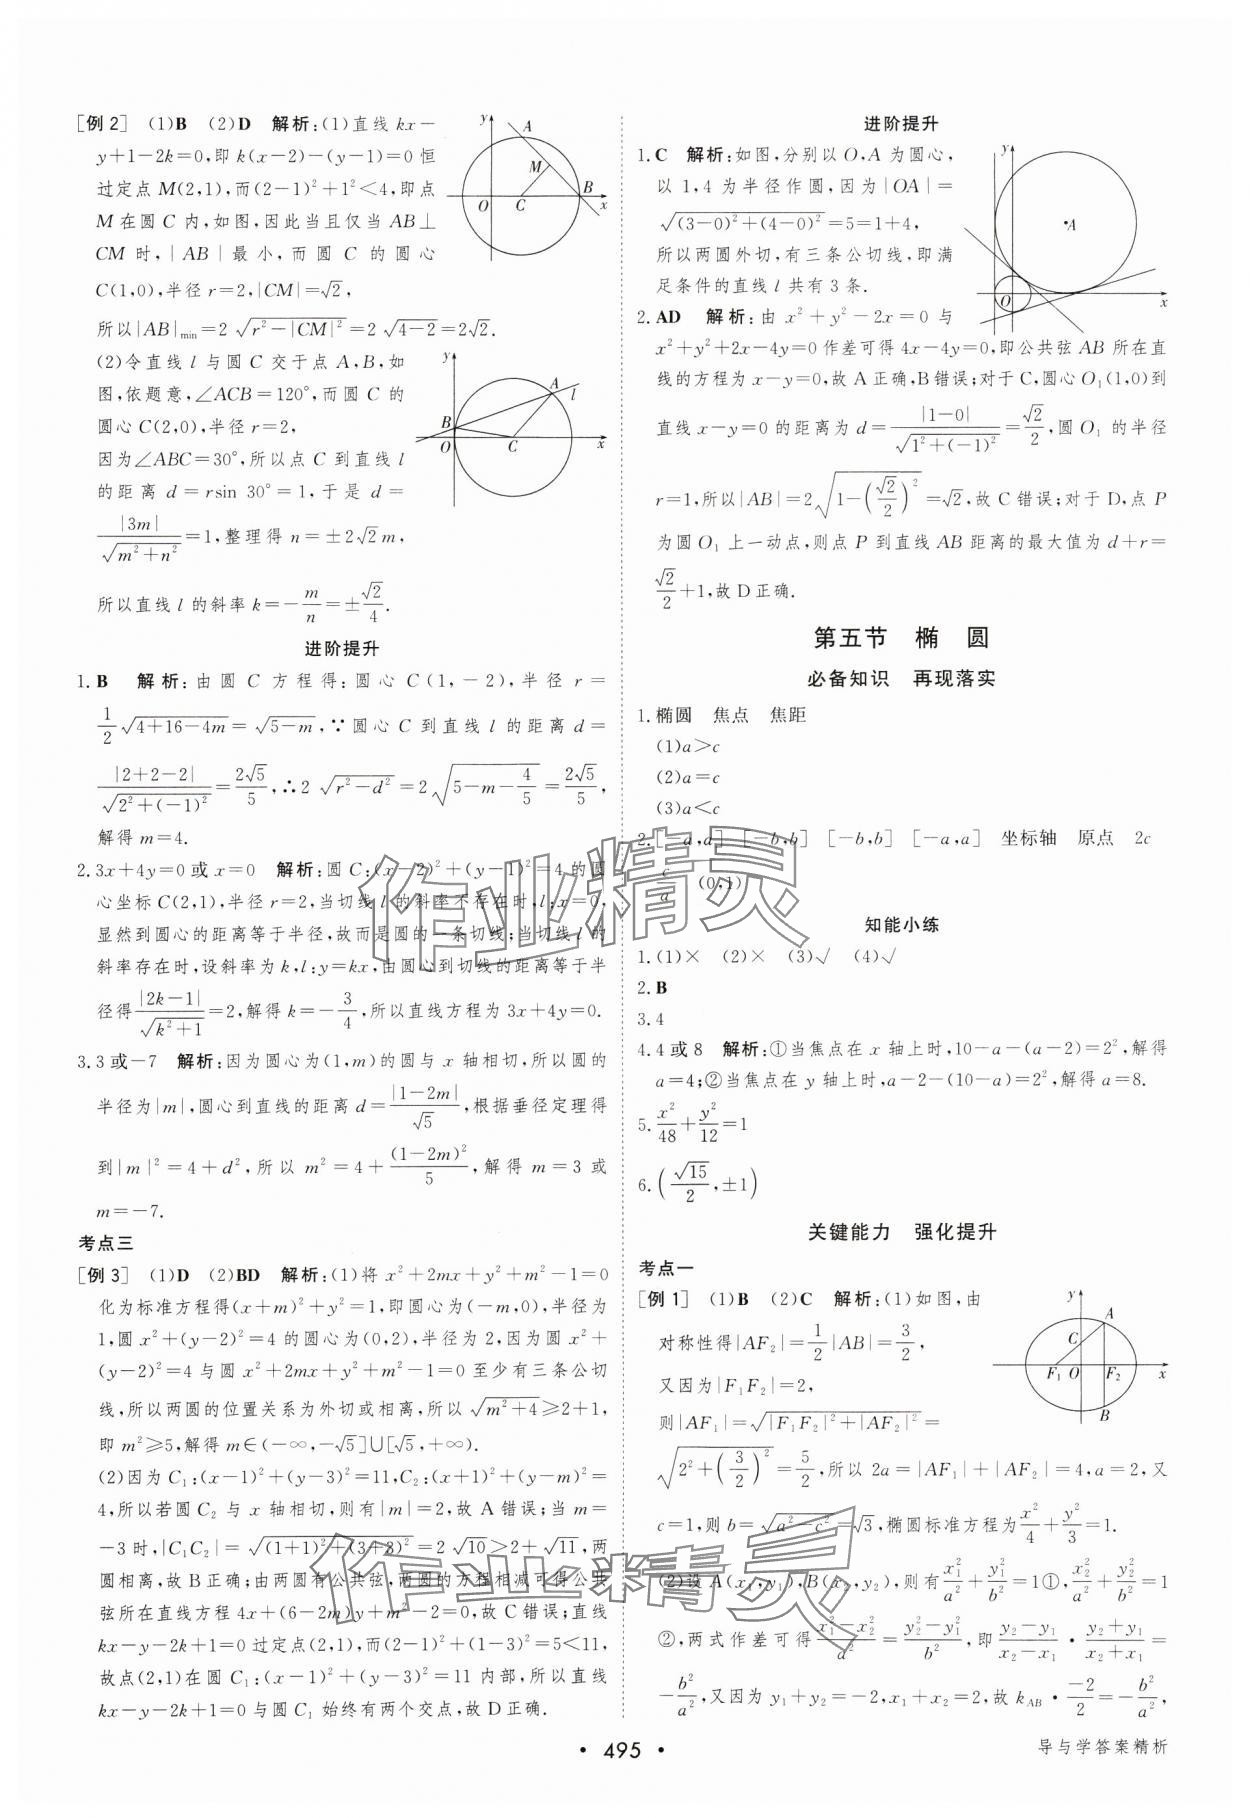 [例2] (1)B (2)D 解析:(1)直线 kx-
y+1-2k=0,即 k(x-2)-(y-1)=0 恒
过定点 M(2,1),而(2-1)²+1²<4,即点
M 在圆 C 内,如图,因此当且仅当 AB⊥
CM 时,|AB|最小,而圆 C 的圆心
C(1,0),半径 r=2,|CM|=√2,
所以|AB|min=2√(r²-|CM|²)=2√(4-2)=2√2.
(2)令直线 l 与圆 C 交于点 A,B,如
图,依题意,∠ACB=120°,而圆 C 的
圆心 C(2,0),半径 r=2,
因为∠ABC=30°,所以点 C 到直线 l
的距离 d=rsin 30°=1,于是 d=
|3m|/√(m²+n²)=1,整理得 n=±2√2m,
所以直线 l 的斜率 k=-m/n=±√2/4.
进阶提升
1.B 解析:由圆 C 方程得:圆心 C(1,-2),半径 r=
1/2√(4+16-4m)=√(5-m),∵圆心 C 到直线 l 的距离 d=
|2+2-2|/√(2²+(-1)²)=2√5/5,∴2√(r²-d²)=2√(5-m-4/5)=2√5/5,
解得 m=4.
2.3x+4y=0 或 x=0 解析:圆 C:(x-2)²+(y-1)²=4 的圆
心坐标 C(2,1),半径 r=2,当切线 l 的斜率不存在时,l:x=0,
显然到圆心的距离等于半径,故而是圆的一条切线;当切线 l 的
斜率存在时,设斜率为 k,l:y=kx,由圆心到切线的距离等于半
径得|2k-1|/√(k²+1)=2,解得 k=-3/4,所以直线方程为 3x+4y=0.
3.3 或-7 解析:因为圆心为(1,m)的圆与 x 轴相切,所以圆的
半径为|m|,圆心到直线的距离 d=|1-2m|/√5,根据垂径定理得
到|m|²=4+d²,所以 m²=4+(1-2m)²/5,解得 m=3 或
m=-7.
考点三
[例3] (1)D (2)BD 解析:(1)将 x²+2mx+y²+m²-1=0
化为标准方程得(x+m)²+y²=1,即圆心为(-m,0),半径为
1,圆 x²+(y-2)²=4 的圆心为(0,2),半径为 2,因为圆 x²+
(y-2)²=4 与圆 x²+2mx+y²+m²-1=0 至少有三条公切
线,所以两圆的位置关系为外切或相离,所以√(m²+4)≥2+1,
即 m²≥5,解得 m∈(-∞,-√5]∪[√5,+∞).
(2)因为 C₁:(x-1)²+(y-3)²=11,C₂:(x+1)²+(y-m)²=
4,所以若圆 C₂ 与 x 轴相切,则有|m|=2,故 A 错误;当 m=
-3 时,|C₁C₂|=√((1+1)²+(3+3)²)=2√10>2+√11,两
圆相离,故 B 正确;由两圆有公共弦,两圆的方程相减可得公共
弦所在直线方程 4x+(6-2m)y+m²-2=0,故 C 错误;直线
kx-y-2k+1=0 过定点(2,1),而(2-1)²+(1-3)²=5<11,
故点(2,1)在圆 C₁:(x-1)²+(y-3)²=11 内部,所以直线
kx-y-2k+1=0 与圆 C₁ 始终有两个交点,故 D 正确.
y
A
M
B
O
C
x
y
A
l
B
O
C
x
进阶提升
1.C 解析:如图,分别以 O,A 为圆心,
以 1,4 为半径作圆,因为|OA|=
√((3-0)²+(4-0)²)=5=1+4,
所以两圆外切,有三条公切线,即满
足条件的直线 l 共有 3 条.
y
A
O
x
2.AD 解析:由 x²+y²-2x=0 与
x²+y²+2x-4y=0 作差可得 4x-4y=0,即公共弦 AB 所在直
线的方程为 x-y=0,故 A 正确,B 错误;对于 C,圆心 O₁(1,0)到
直线 x-y=0 的距离为 d=|1-0|/√(1²+(-1)²)=√2/2,圆 O₁ 的半径
r=1,所以|AB|=2√(1-(√2/2)²)=√2,故 C 错误;对于 D,点 P
为圆 O₁ 上一动点,则点 P 到直线 AB 距离的最大值为 d+r=
√2/2+1,故 D 正确.
第五节 椭 圆
必备知识 再现落实
1.椭圆 焦点 焦距
(1)a>c
(2)a=c
(3)a<c
2.[-a,a] [-b,b] [-b,b] [-a,a] 坐标轴 原点 2c
c/a (0,1)
知能小练
1.(1)× (2)× (3)√ (4)√
2.B
3.4
4.4 或 8 解析:①当焦点在 x 轴上时,10-a-(a-2)=2²,解得
a=4;②当焦点在 y 轴上时,a-2-(10-a)=2²,解得 a=8.
5.x²/48+y²/12=1
6.(√15/2,±1)
关键能力 强化提升
考点一
[例1] (1)B (2)C 解析:(1)如图,由
对称性得|AF₂|=1/2|AB|=3/2,
又因为|F₁F₂|=2,
则|AF₁|=√(|F₁F₂|²+|AF₂|²)=
√(2²+(3/2)²)=5/2,所以 2a=|AF₁|+|AF₂|=4,a=2,又
c=1,则 b=√(a²-c²)=√3,椭圆标准方程为x²/4+y²/3=1.
y
A
C
F₁
O
F₂
x
B
(2)设 A(x₁,y₁),B(x₂,y₂),则有x₁²/a²+y₁²/b²=1①,x₂²/a²+y₂²/b²=1
②,两式作差可得(x₁²-x₂²)/a²=(y₂²-y₁²)/b²,即(y₂-y₁)/(x₂-x₁)·(y₂+y₁)/(x₂+x₁)=
-b²/a²,又因为 y₁+y₂=-2,x₁+x₂=2,故 k_AB·(-2)/2=-b²/a²,
作业精灵
作业精灵
• 495 •
导与学答案精析